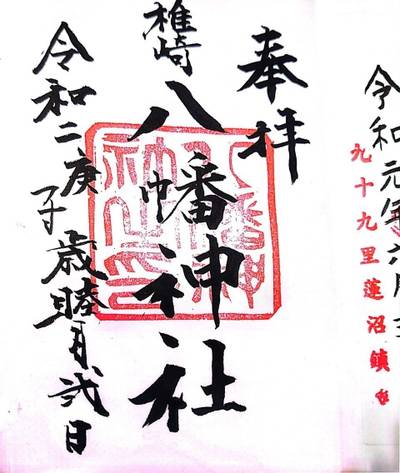 令和元年六月
九十九里蓮沼鎮
奉拝
椎崎
八幡神社
令和二庚子歳睦月弐日